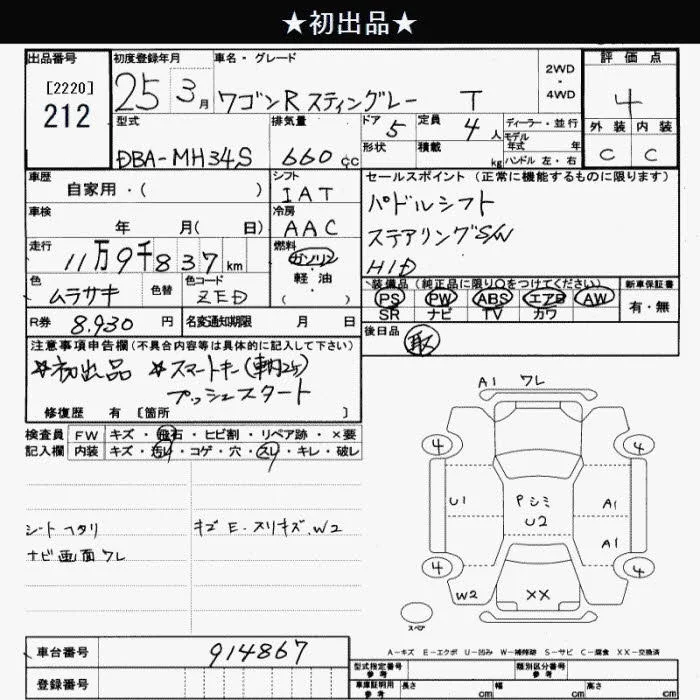 ★初出品★
出品番号 初度登録年月 車名・グレード 2WD・4WD 評価点
[2220]
212
25 3月 ワゴンR スティングレー T 4
型式 排気量 ドア 5 定員 4人 ディーラー・並行 外装 内装
モデル年式 年
DBA-MH34S 660cc 形状 積載 kg ハンドル 左・右 C C
車歴 シフト セールスポイント(正常に機能するものに限ります)
自家用・( ) IAT パドルシフト
車検 冷房
年 月( 日) AAC ステアリングS/W
走行 燃料
11万9千837km ガソリン HID
軽油
( )
色 色替 色コード 装備品(純正品に限り○をつけてください) 新車保証書
ムラサキ ZED PS PW ABS エアB AW 有・無
SR ナビ TV カワ
R券 8.930円 名変通知期限 月 日 後日品 取
注意事項申告欄(不具合内容等は具体的に記入して下さい)
☆初出品 ☆スマートキー(車内2ケ)
プッシュスタート
修復歴 有[箇所 ]
検査員 FW キズ・飛石・ヒビ割・リペア跡・×要
記入欄 内装 キズ・汚れ・コゲ・穴・スレ・キレ・破レ
シート ヘタリ キズ E・スリキズ.W2
ナビ画面 ワレ
A1 ワレ
4 4
U1 Pシミ A1
U2
A1
4 4
W2 XX
スペア
A-キズ E-エクボ U-凹み W-補修跡 S-サビ C-腐食 XX-交換済
車台番号 914867
登録番号
型式指定番号 参考 類別区分番号 参考
車庫証明用 参考 長さ cm 幅 cm 高さ cm